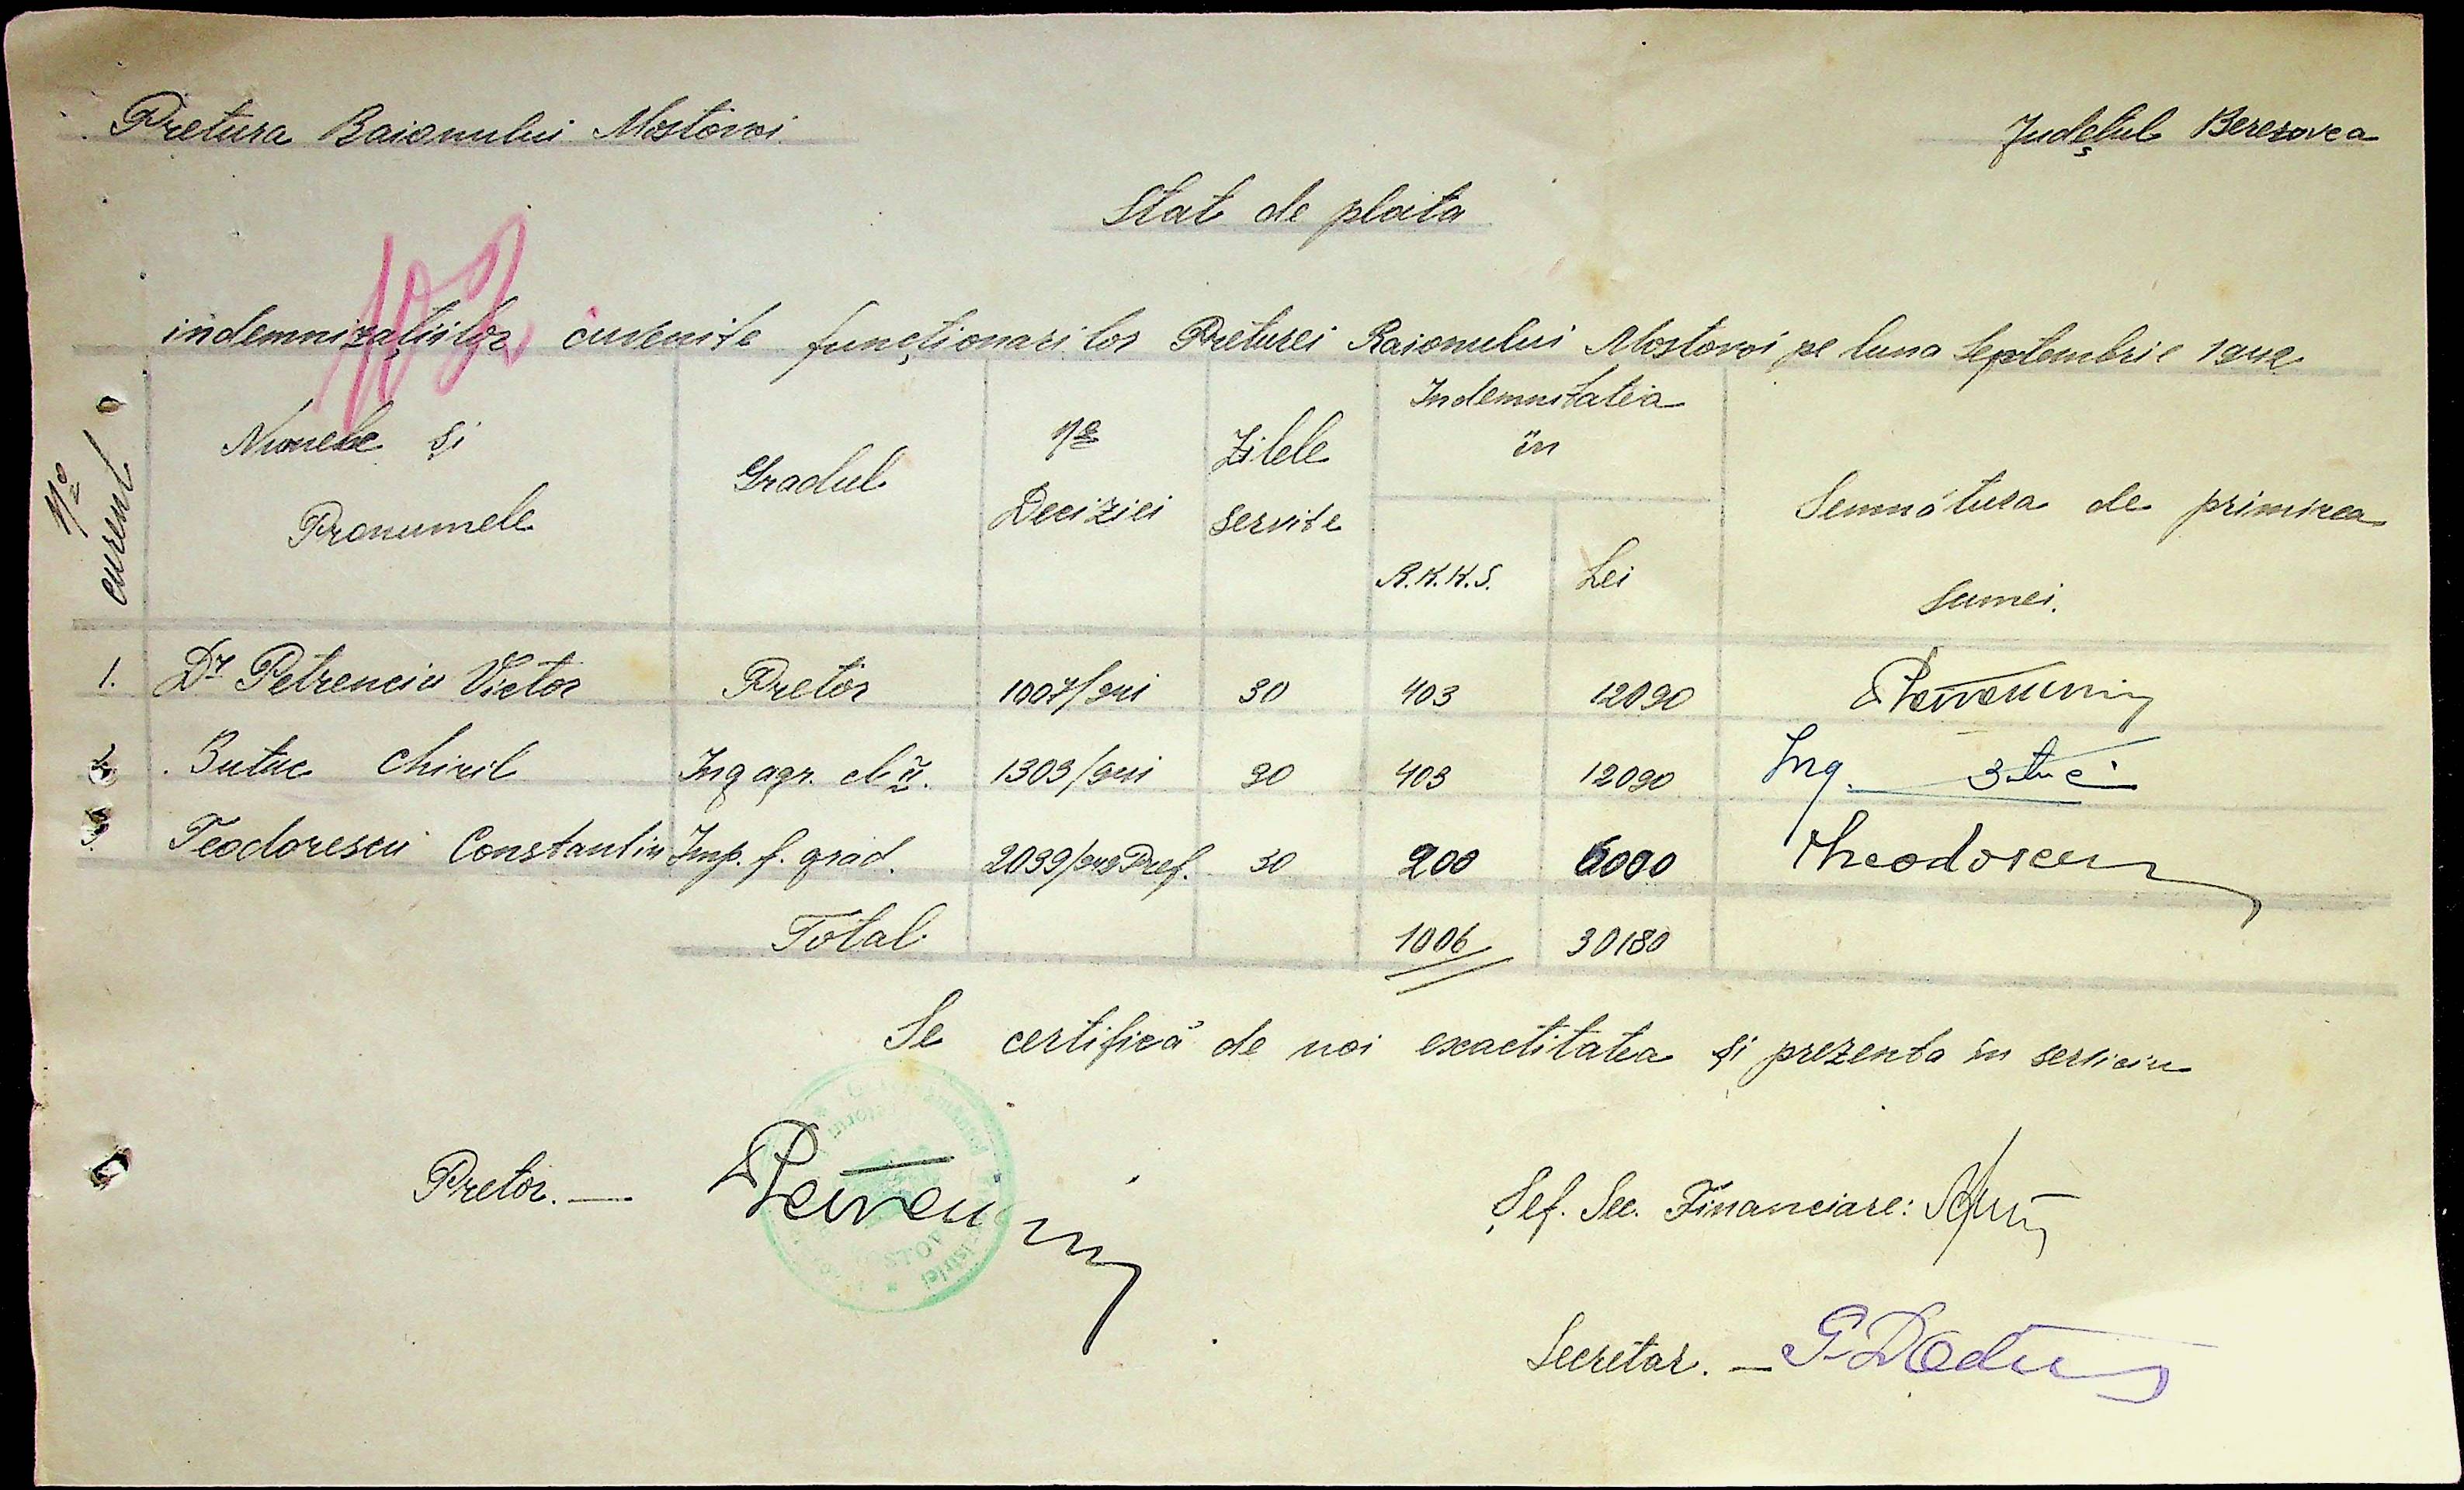 Pretura Raionului Mostovoi
Județul Beresovca
Stat de plata
102
indemnizațiilor cuvenite funcționarilor Preturei Raionului Mostovoi pe luna Septembrie 1942
No curent
Numele și Pronumele
Gradul
No Deciziei
Zilele servite
Indemnitatea în
R.K.K.S.
Lei
Semnătura de primirea sumei.
1. Dr Petrenciu Victor Pretor 1007/941 30 403 12090
2. Butuc Chiril Ing agr. cl. II. 1303/941 30 403 12090 Ing.
3. Teodorescu Constantin Imp. f. grad. 2039/942 Pref. 30 200 6000 Theodorescu
Total 1006 30180
Se certifică de noi exactitatea și prezenta în serviciu
Pretor. —
Șef. Sec. Financiare:
Secretar. —